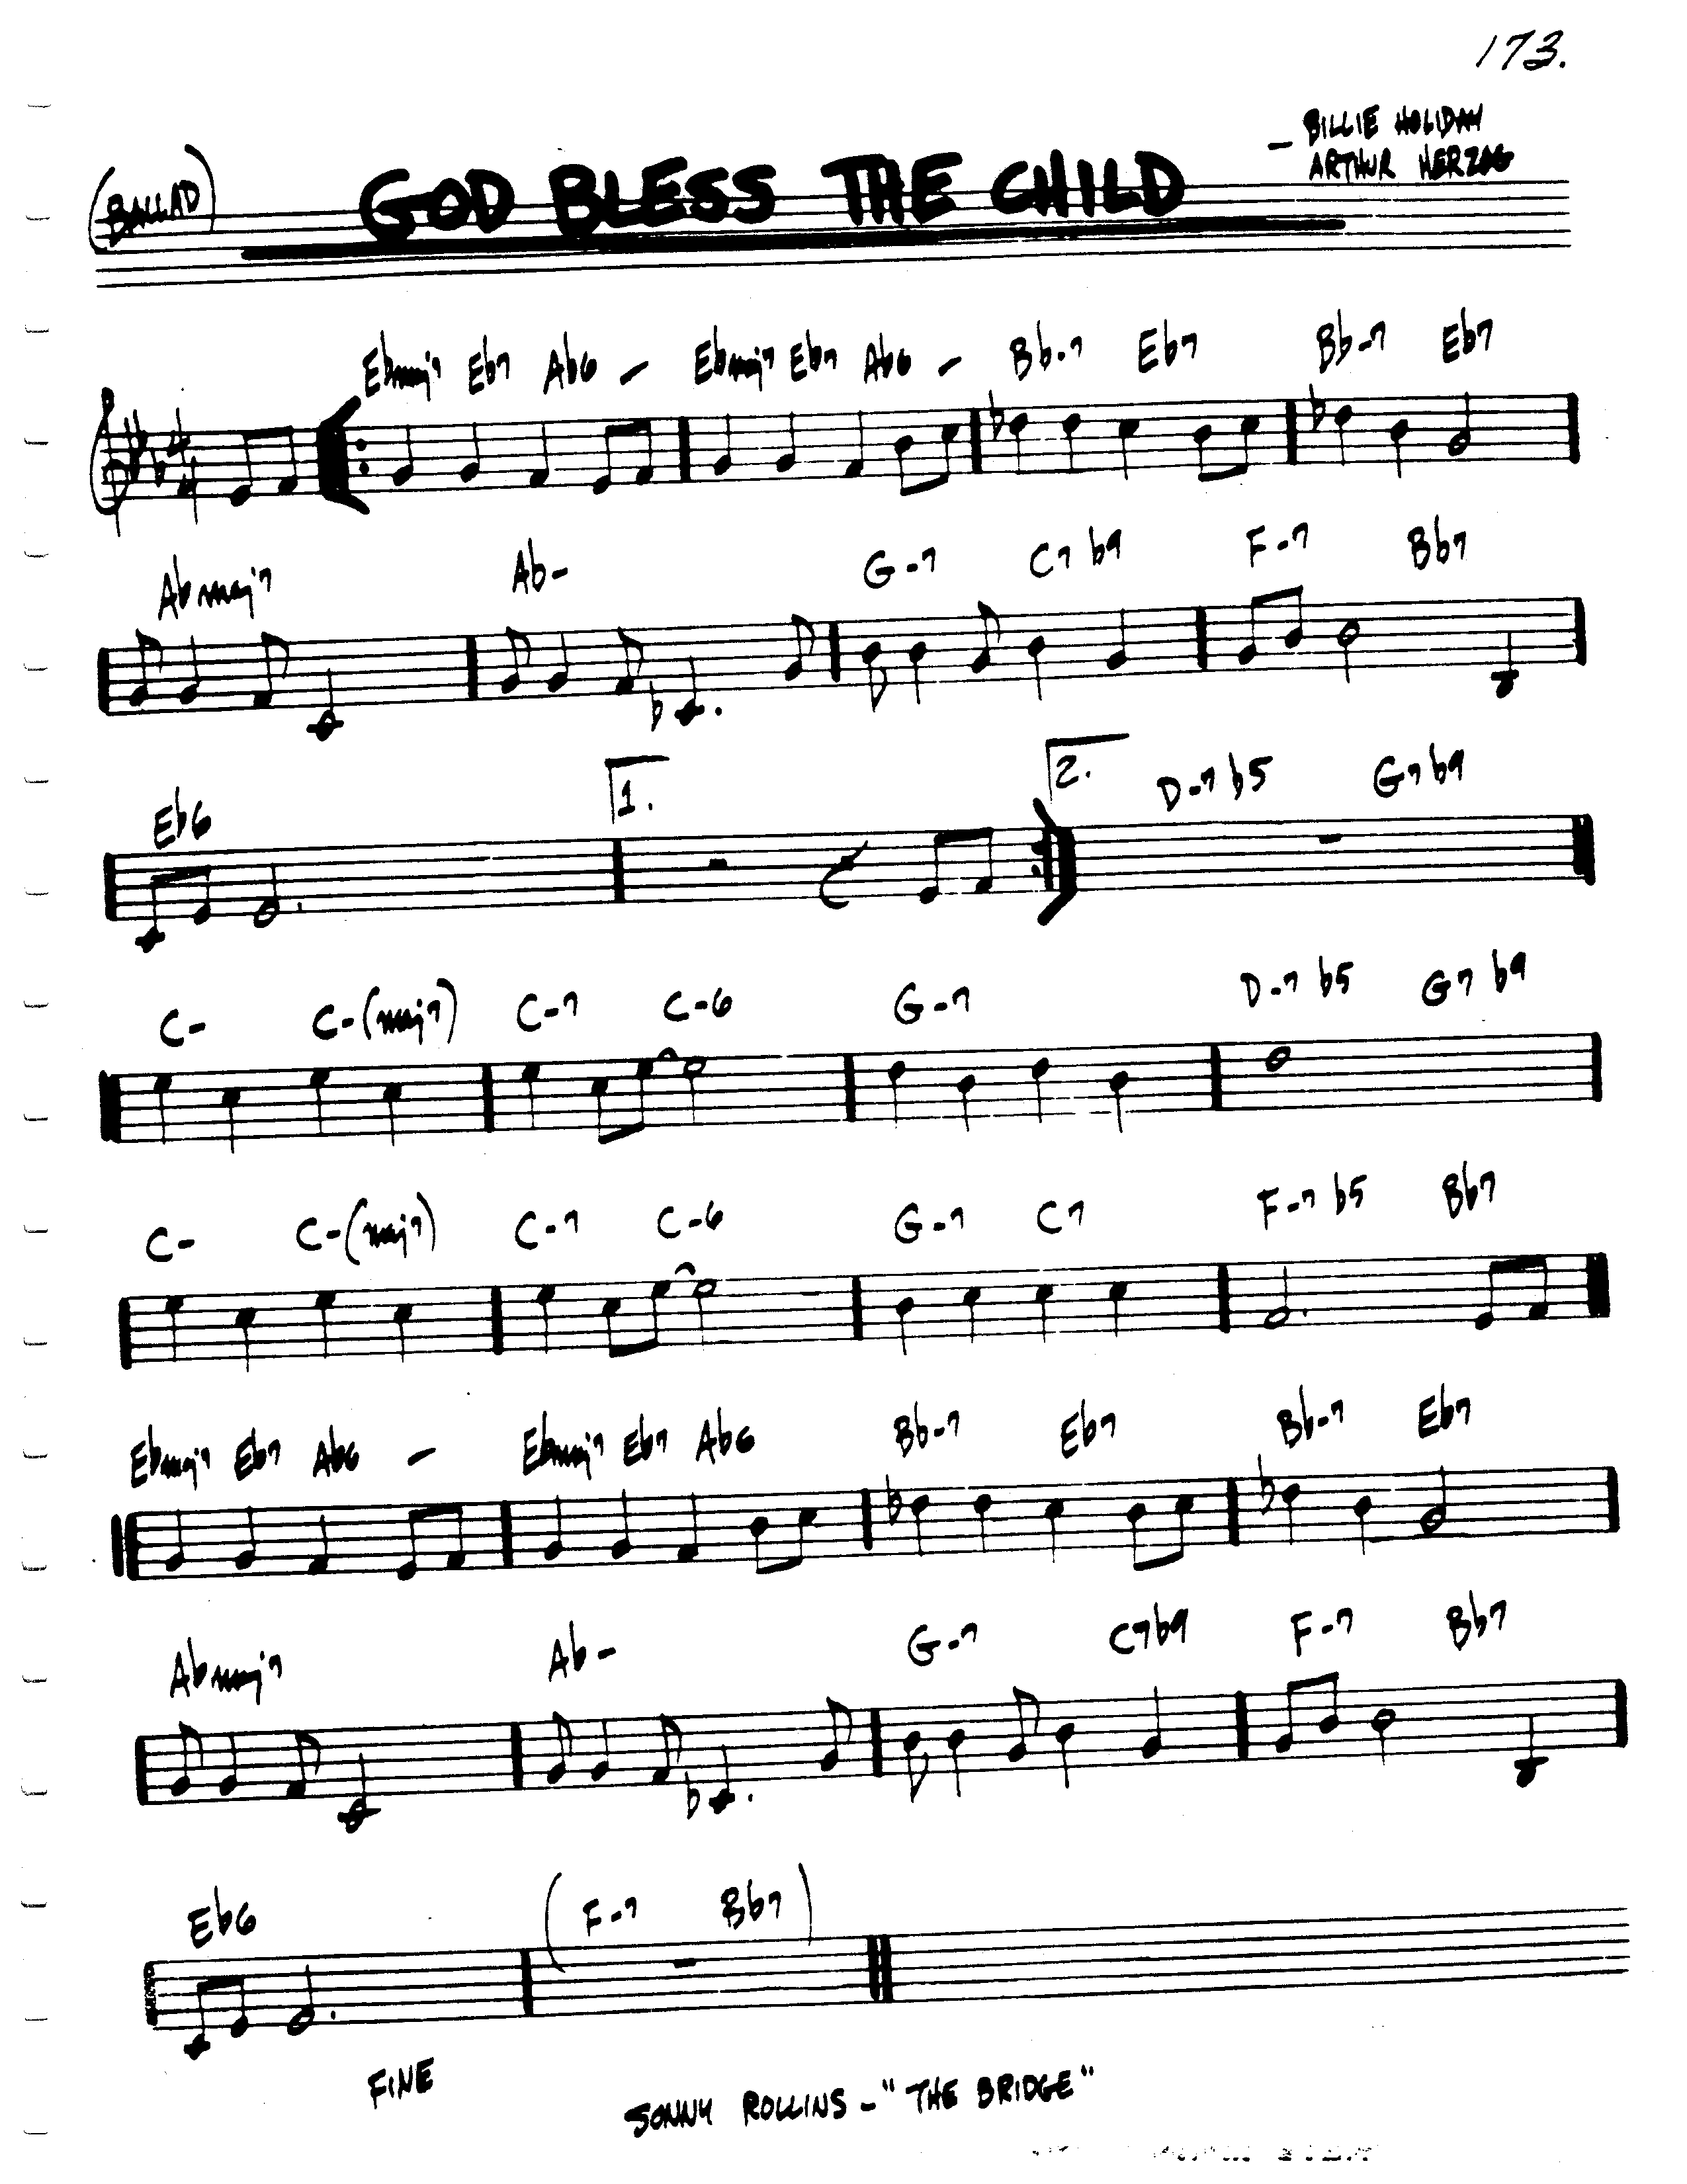 173.
— BILLIE HOLIDAY
ARTHUR HERZOG
(BALLAD)
GOD BLESS THE CHILD
Ebmaj7 Eb7 Ab6 – Ebmaj7 Eb7 Ab6 – Bb-7 Eb7 Bb-7 Eb7
4
4
Abmaj7 Ab- G-7 C7b9 F-7 Bb7
1. 2. D-7b5 G7b9
Eb6
C- C-(maj7) C-7 C-6 G-7 D-7b5 G7b9
C- C-(maj7) C-7 C-6 G-7 C7 F-7b5 Bb7
Ebmaj7 Eb7 Ab6 – Ebmaj7 Eb7 Ab6 Bb-7 Eb7 Bb-7 Eb7
Abmaj7 Ab- G-7 C7b9 F-7 Bb7
Eb6 (F-7 Bb7)
FINE
SONNY ROLLINS – "THE BRIDGE"